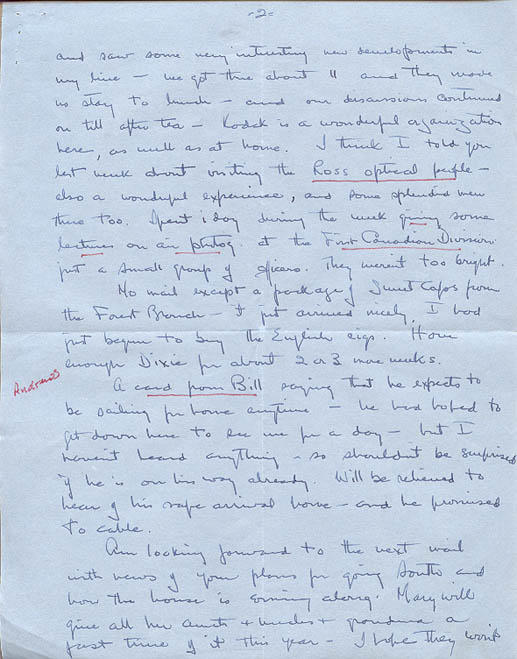 -2-
and saw some very interesting new developments in
my line – we got there about 11 and they made
us stay to lunch – and our discussions continued
on till after tea – Kodak is a wonderful organization
here, as well as at home. I think I told you
last week about visiting the Ross optical people –
also a wonderful experience, and some splendid men
there too. Spent 1 day during the week giving some
lectures on air photog. at the First Canadian Division
just a small group of officers. They weren't too bright.
No mail except a package of Sweet Caps from
the Forest Branch – It just arrived nicely. I had
just begun to buy the English cigs. Have
enough Dixie for about 2 or 3 more weeks.
Andrews
A card from Bill saying that he expects to
be sailing for home anytime – he had hoped to
get down here to see me for a day – but I
haven't heard anything – so shouldn't be surprised
if he is on his way already. Will be relieved to
hear of his safe arrival home – and he promised
to cable.
Am looking forward to the next mail
with news of your plans for going South and
how the house is coming along. Mary will
give all her aunts + uncles + grandma a
fast time of it this year – I hope they won't